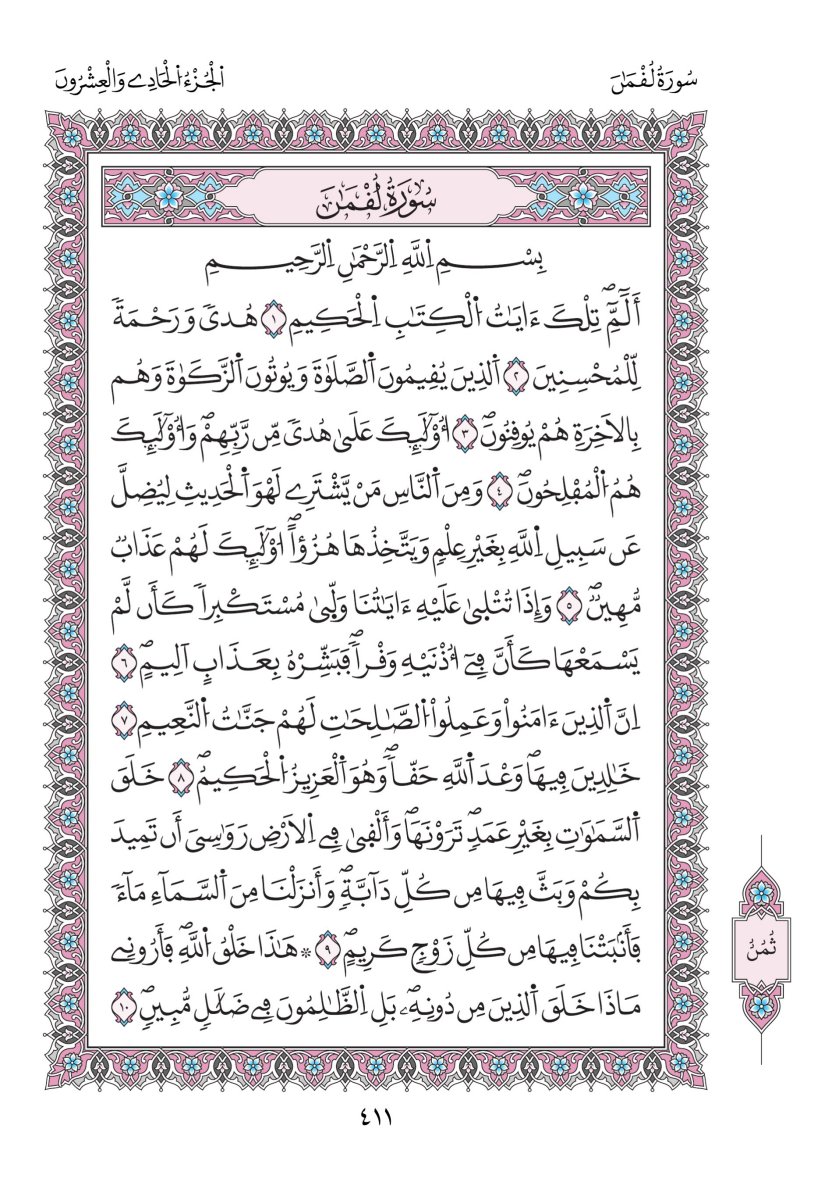 سُورَةُ لُقْمَٰنَ
اَ۬لْجُزْءُ اُ۬لْحَادِے وَالْعِشْرُونَ
سُورَةُ لُقْمَٰنَ
بِسْمِ اِ۬للَّهِ اِ۬لرَّحْمَٰنِ اِ۬لرَّحِيمِ
أَلَٓمِّٓۖ تِلْكَ ءَايَٰتُ اُ۬لْكِتَٰبِ اِ۬لْحَكِيمِ ١ هُدىٗ وَرَحْمَةٗ
لِّلْمُحْسِنِينَ ٢ اَ۬لذِينَ يُقِيمُونَ اَ۬لصَّلَوٰةَ وَيُوتُونَ اَ۬لزَّكَوٰةَ وَهُم
بِالَاخِرَةِ هُمْ يُوقِنُونَۖ ٣ أُوْلَٰٓئِكَ عَلَىٰ هُدىٗ مِّن رَّبِّهِمْۖ وَأُوْلَٰٓئِكَ
هُمُ اُ۬لْمُفْلِحُونَۖ ٤ وَمِنَ اَ۬لنَّاسِ مَنْ يَّشْتَرِے لَهْوَ اَ۬لْحَدِيثِ لِيُضِلَّ
عَن سَبِيلِ اِ۬للَّهِ بِغَيْرِ عِلْمٖ وَيَتَّخِذُهَا هُزُؤاًۖ ا۟وْلَٰٓئِكَ لَهُمْ عَذَابٞ
مُّهِينٞۖ ٥ وَإِذَا تُتْلَىٰ عَلَيْهِ ءَايَٰتُنَا وَلَّىٰ مُسْتَكْبِراٗ كَأَن لَّمْ
يَسْمَعْهَا كَأَنَّ فِےٓ أُذْنَيْهِ وَقْراٗۖ فَبَشِّرْهُ بِعَذَابٍ اَلِيمٍۖ ٦
اِنَّ اَ۬لذِينَ ءَامَنُواْ وَعَمِلُواْ اُ۬لصَّٰلِحَٰتِ لَهُمْ جَنَّٰتُ اُ۬لنَّعِيمِ ٧
خَٰلِدِينَ فِيهَاۖ وَعْدَ اَ۬للَّهِ حَقّاٗۖ وَهُوَ اَ۬لْعَزِيزُ اُ۬لْحَكِيمُۖ ٨ خَلَقَ
اَ۬لسَّمَٰوَٰتِ بِغَيْرِ عَمَدٖۖ تَرَوْنَهَاۖ وَأَلْقَىٰ فِے اِ۬لَارْضِ رَوَٰسِيَ أَن تَمِيدَ
بِكُمْ وَبَثَّ فِيهَا مِن كُلِّ دَآبَّةٖۖ وَأَنزَلْنَا مِنَ اَ۬لسَّمَآءِ مَآءٗ
فَأَنۢبَتْنَا فِيهَا مِن كُلِّ زَوْجٖ كَرِيمٍۖ ٩ * هَٰذَا خَلْقُ اُ۬للَّهِۖ فَأَرُونِے
مَاذَا خَلَقَ اَ۬لذِينَ مِن دُونِهِۦۖ بَلِ اِ۬لظَّٰلِمُونَ فِے ضَلَٰلٖ مُّبِينٖۖ ١٠
ثُمُنُ
٤١١